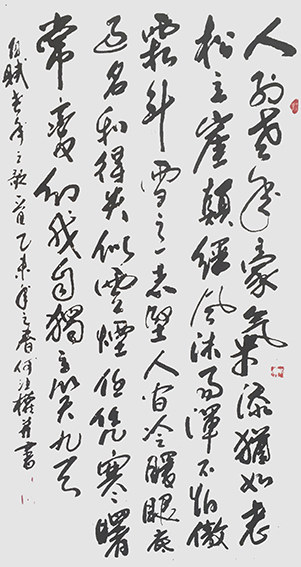 人到老年豪气添犹如老
松立崖颠经风沐雨浑不怕傲
霜斗雪志坚人间冷暖眼底
过名和得失似云烟任凭寒暑
常变幻我自独立笑九天
自赋老年之歌一首乙未年之春何洪权并书